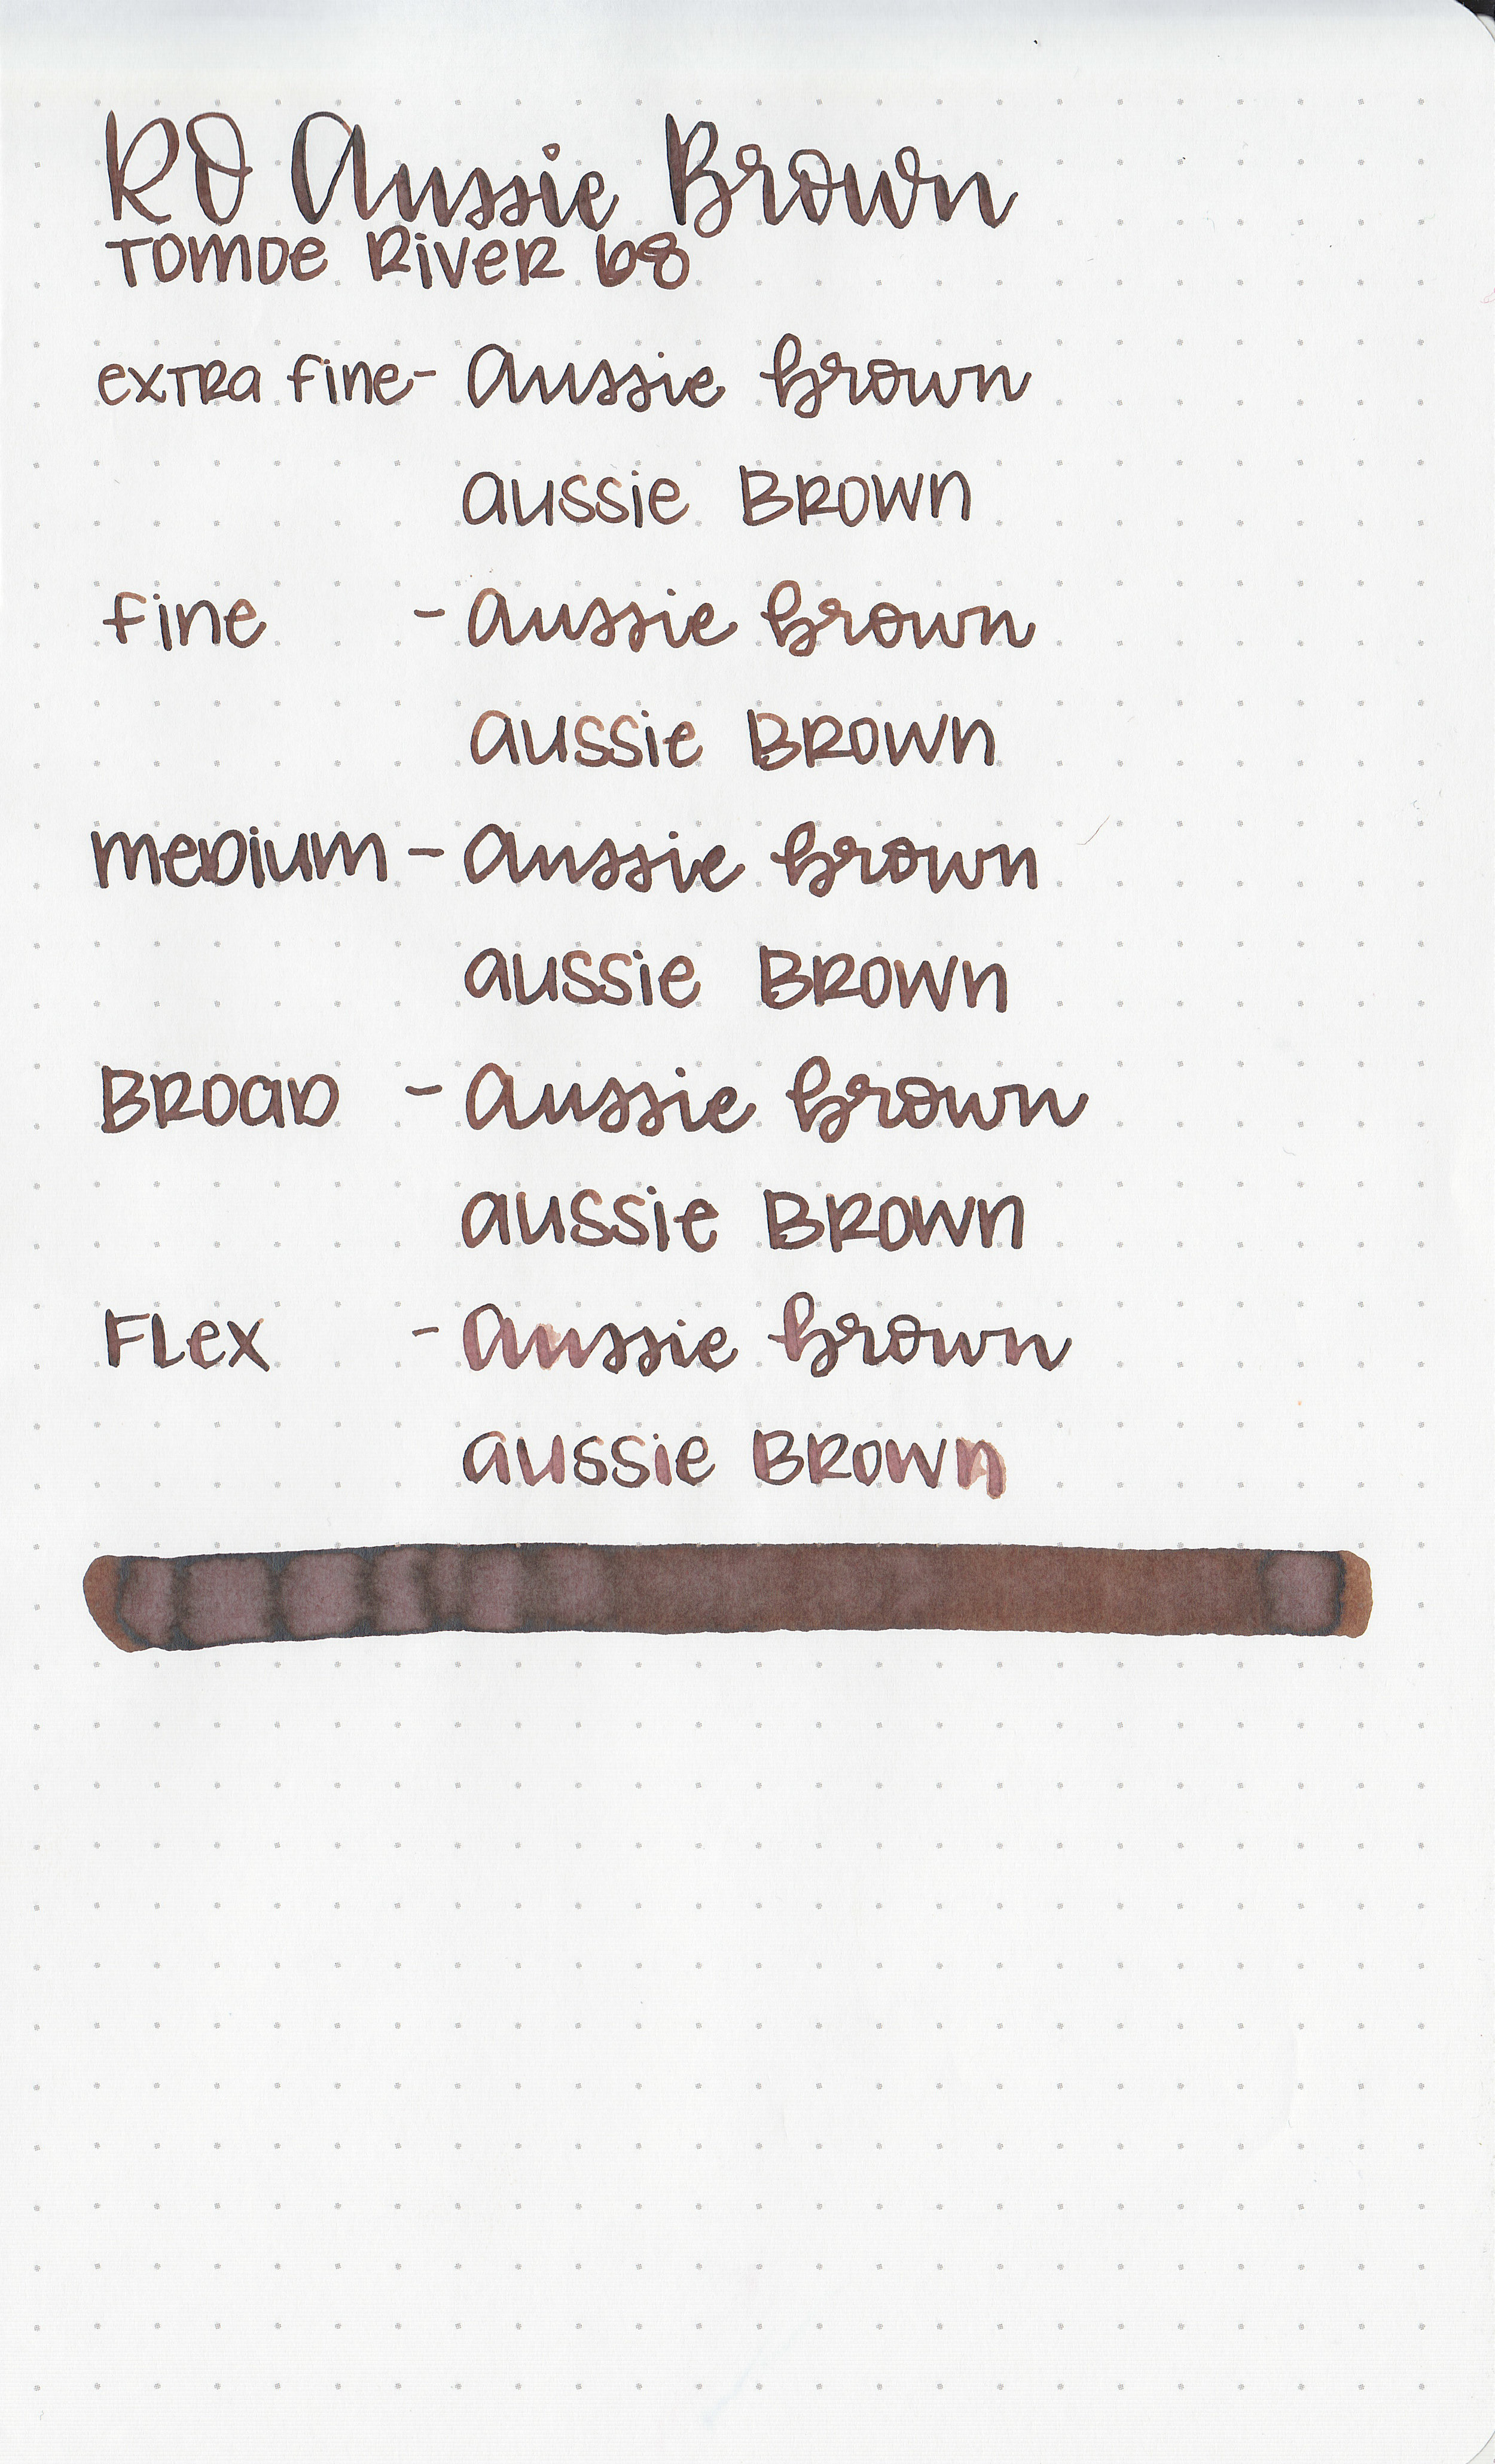 RO Aussie Brown
TOMOE RIVER 68
extra fine - aussie brown
aussie BROWN
fine - aussie brown
aussie BROWN
medium - aussie brown
aussie BROWN
BROAD - aussie brown
aussie BROWN
FLEX - aussie brown
aussie BROWN